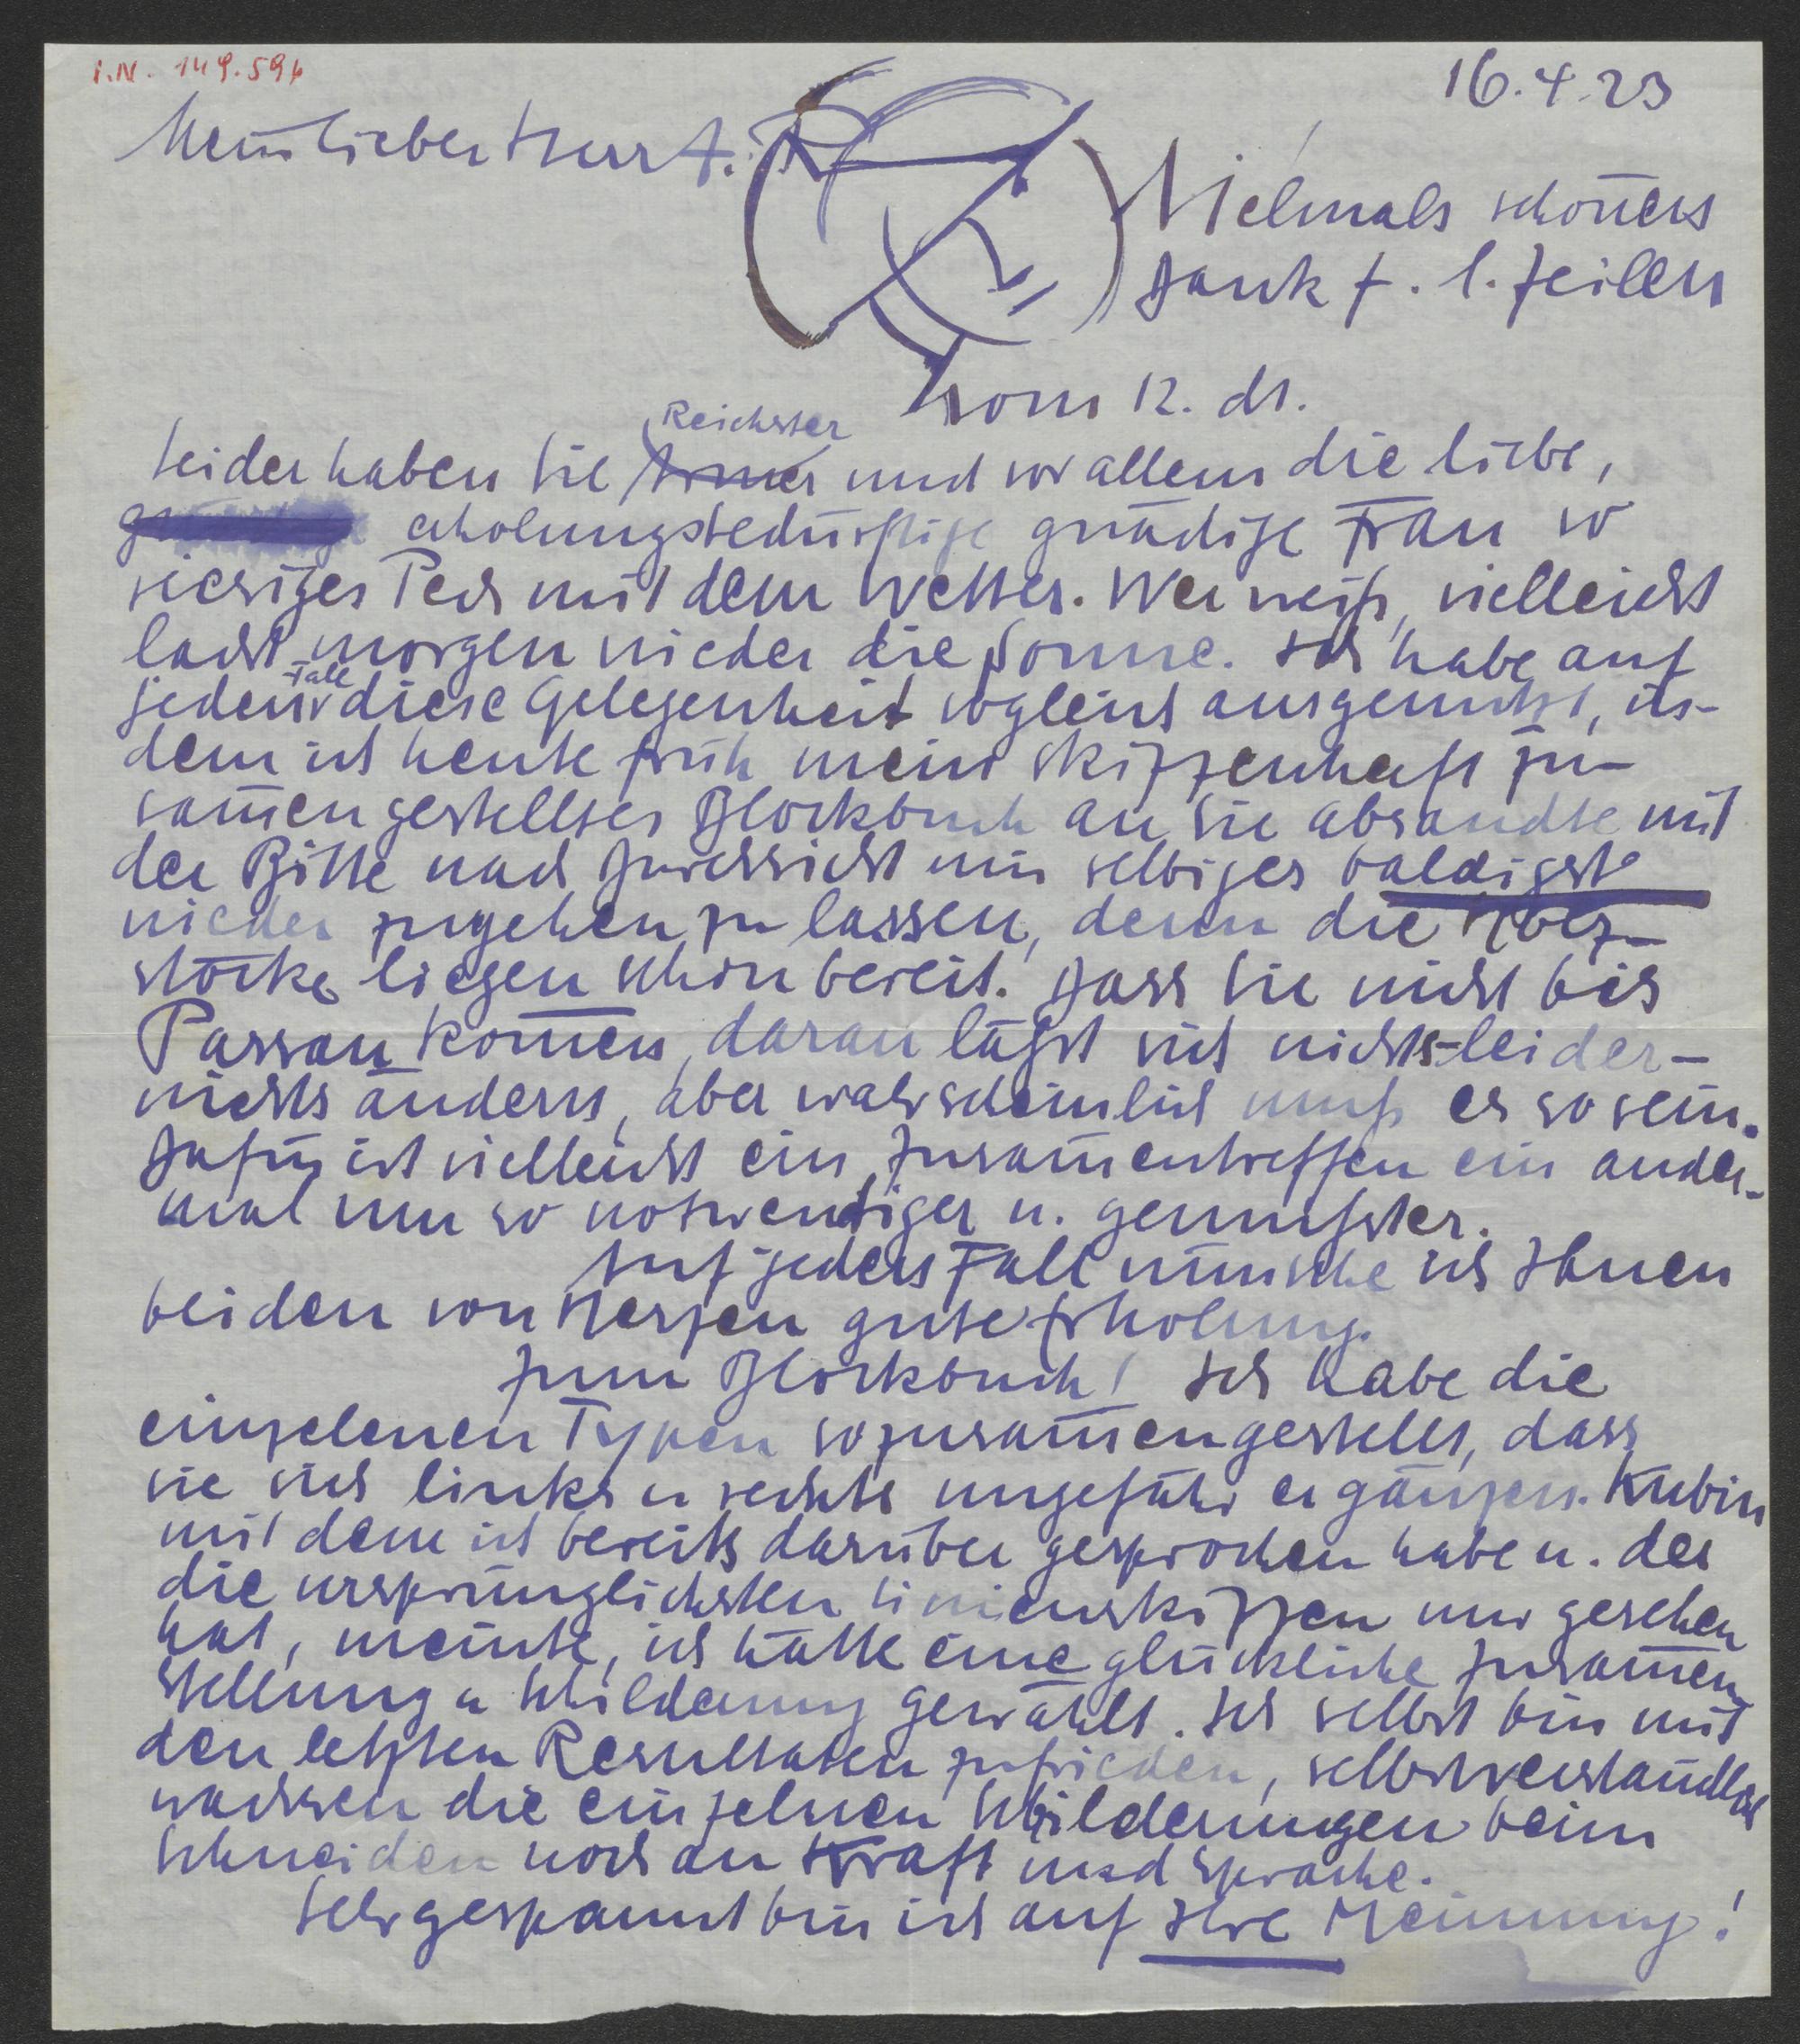 I.N. 149.596
16.4.23
Mein lieber Herr A. R.
Vielmals schönen
Dank f. l. Zeilen
vom 12. ds.
Reichster
Leider haben Sie Armer und vor allem die liebe,
erholungsbedürftige gnädige Frau so
riesiges Pech mit dem Wetter. Wer weiß, vielleicht
lacht morgen wieder die Sonne. Ich habe auf
jeden Fall diese Gelegenheit sogleich ausgenützt, in-
dem ich heute früh mein skizzenhaft zu-
sam̅engestelltes Blockbuch an Sie absandte mit
der Bitte nach Durchsicht mir selbiges baldigst
wieder zugehen zu lassen, denn die Holz-
stöcke liegen schon bereit. Dass Sie nicht bis
Passau kom̅en, daran läßt sich nichts – leider –
nichts ändern, aber wahrscheinlich muß es so sein.
Dafür ist vielleicht ein Zusam̅entreffen ein ander-
mal um so notwendiger u. gewußter.
Auf jeden Fall wünsche ich Ihnen
beiden von Herzen gute Erholung.
Zum Blockbuch! Ich habe die
einzelenen Typen so zusam̅engestellt, dass
sie sich links u rechts ungefähr ergänzen. Kubin
mit dem ich bereits darüber gesprochen habe u. der
die ursprünglichsten Linienskizzen nur gesehen
hat, meinte, ich hätte eine glückliche Zusam̅en
stellung u Schilderung gewählt. Ich selbst bin mit
den letzten Resultaten zufrieden, selbstverständlich
wachsen die einzelnen Schilderungen beim
Schneiden noch an Kraft und Sprache.
Sehr gespannt bin ich auf Ihre Meinung!